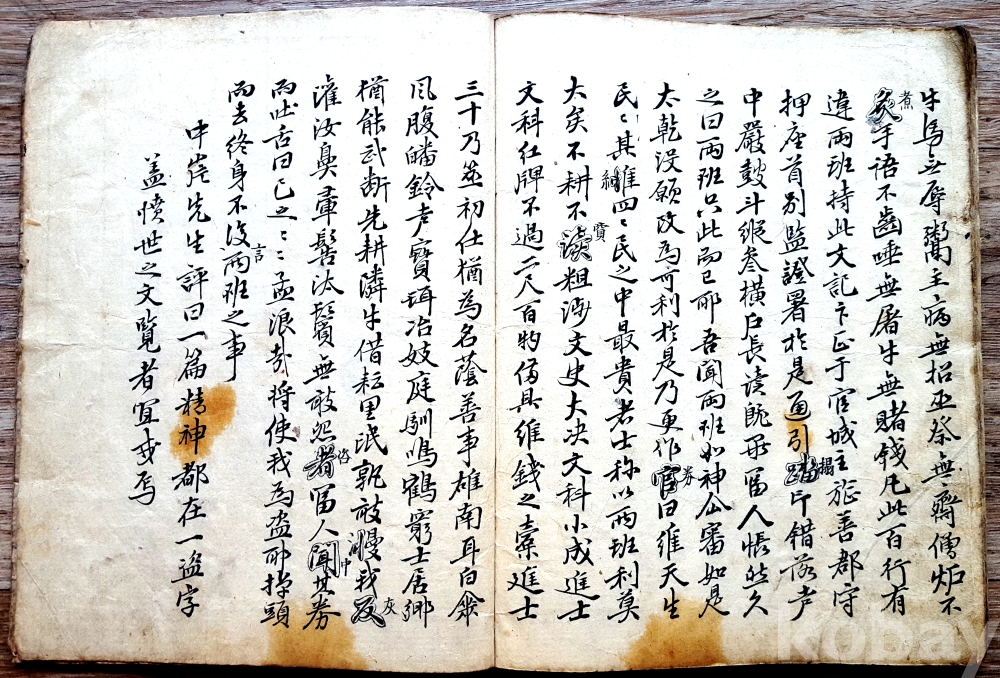 牛馬无辱鬻主病無招巫祭無齋僧炉不
煮手語不齒唾無屠牛無賭錢凡此百行有
違兩班持此文記卞正于官城主旌善郡守
押座首別監證署於是通引搨印錯落声
中嚴鼓斗縱参橫户長读既畢富人悵然久
之曰兩班只此而已耶吾聞兩班如神仙審如是
太乾没願改為可利於是乃更作券曰維天生
民〻其維四〻民之中最貴者士称以兩班利莫
大矣不耕不賈粗涉文史大决文科小成進士
文科红牌不過二尺百物俻具維錢之橐進士
三十乃筮初仕猶為名蔭善事雄南耳白傘
风腹皤鈴声寶珥冶妓庭馴鳴鶴窮士居鄉
猶能武斷先耕隣牛借耘里氓孰敢慢我灰
灌汝鼻暈髻汰鬢無敢怨咨富人中其券
而吐舌曰已之〻〻孟浪哉将使我為盗耶掉頭
而去終身不復言兩班之事
中崖先生評曰一篇精神都在一盗字
盖憤世之文覧者宜戒焉
Kobay